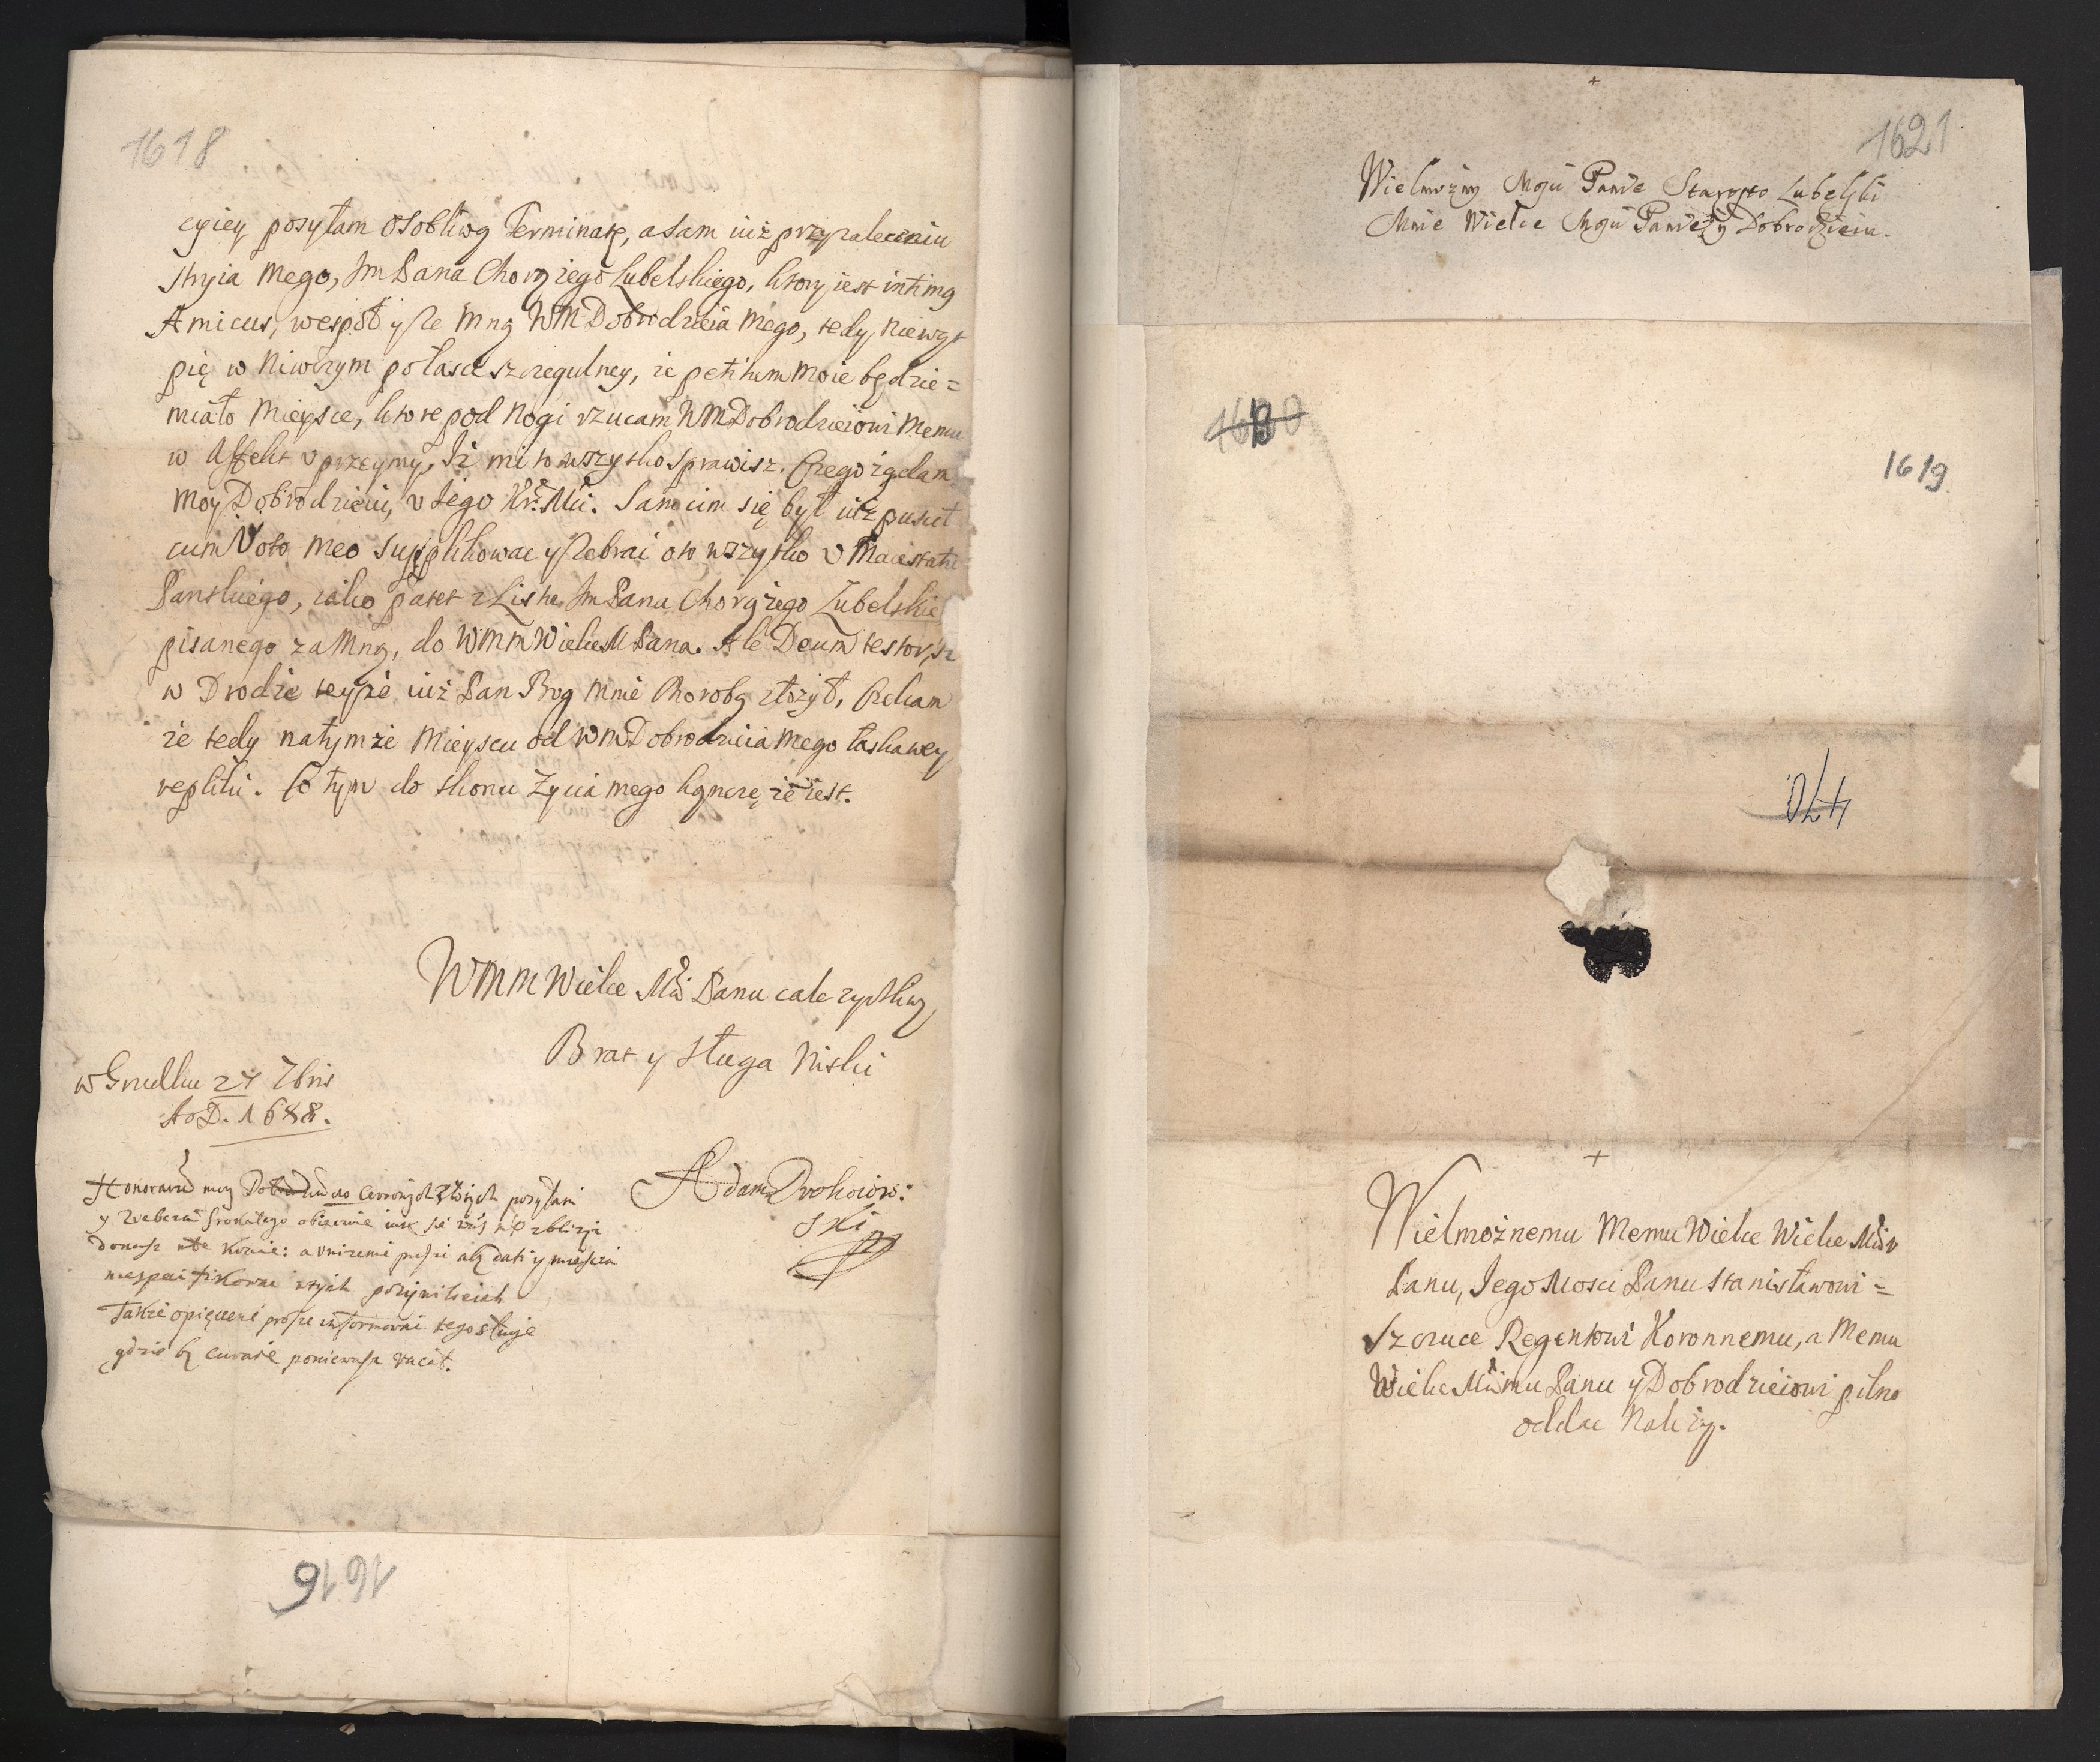 1618
cyiey posyłam osobliwą Terminatę, a sam iuż przy zaleceniu
stryia mego, Jm Pana Chorążego Lubelskiego, ktory iest intimg
Amicus, wespoł y ze mną WMDobrodzieia mego, tedy niewąt
pię w łasce szczegulney, że petitum moie będzie =
miało mieysce, ktore pod nogi rzucam WMDobrodzieiowi memu
w affekt uprzeymy, Iż mi to wszytko sprawisz. Czego żądam
moy Dobrodzieiu, v Jego Kr: Mći. Samcim się był iuż puścił
cum Voto meo supplikowac y żebrai o to wszytko v Maiestatu
Panskiego, iako patet z Listu Jm Pana Chorążego Lubelskie
pisanego za Mną, do WMM Wielce M Pana. Ale Deum testor, iż
w Drodze teyże iuż Pan Bog mnie Chorobą złożył, Czekam
że tedy natymże Mieyscu od WMDobrodzieia mego łaskawey
repliki. Co tym do skonu Życia mego kończę, że iest.
WMM Wielce Mći Panu cale zyczliwy
Brat y sługa niski
w Grudku 27 7bris
AoD. 1688.
Adam Drohoiow:
ski
Honorarium moy czerwonych złotych posyłam
y
donosz konie: a vnizenie proszę aby dati y mieysca
niespecifikowac
Także opiekę proszę informowac tego
gdzie by ponewasz vacat.
1616
1621
Wielmożny Moju Panie Starosto Lubelski
Mnie Wielce Moju Panie y Dobrodzieiu.
1619
470
Wielmożnemu Memu Wielce Wielce Mśiv
Panu, Jego Mosci Panu Stanisławowi =
Szczuce Regentowi Koronnemu, a Memu
Wielce Mśimu Panu y Dobrodzieiowi pilno
oddac Należy.